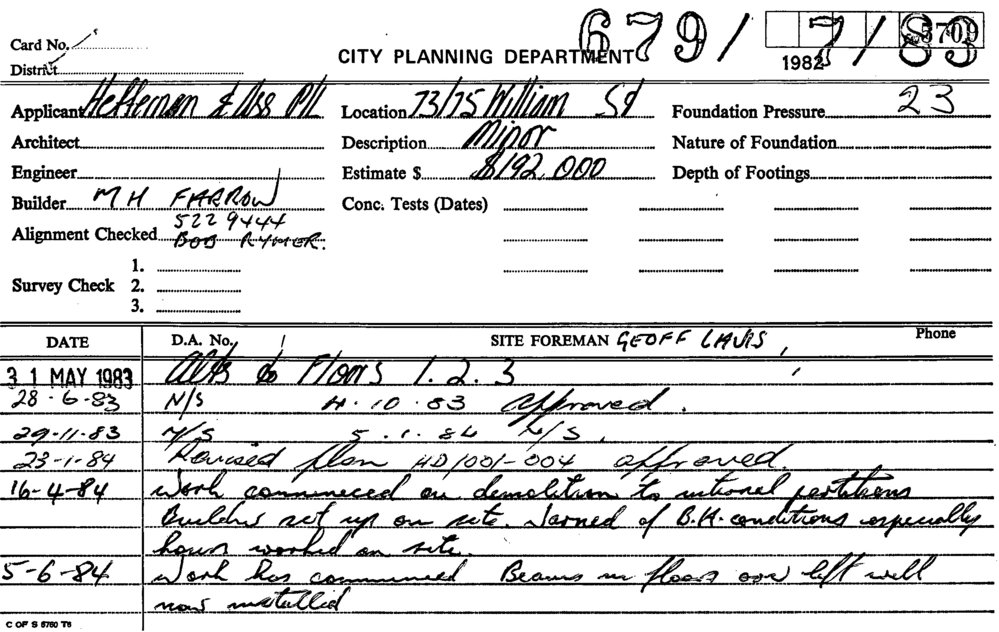 679/7/83
5709
1982
Card No.
District
CITY PLANNING DEPARTMENT
Applicant Heffernan & Ass P/L Location 73/75 William St Foundation Pressure 23
Architect Description Minor Nature of Foundation
Engineer Estimate $ $192,000 Depth of Footings
Builder M H FARROW Conc. Tests (Dates)
5229444
Alignment Checked BOB RYMER.
1.
Survey Check 2.
3.
DATE D.A. No. SITE FOREMAN GEOFF Phone
31 MAY 1983 Alts to Floors 1.2.3
28-6-83 N/S 4.10.83 approved.
29-11-83 N/S 5.1.84 N/S.
23-1-84 Revised plan AD/001-004 approved.
16-4-84 Work commneced on demolition to intional partitions
Builders set up on site. Warned of B.A. conditions especially
hours worked on site.
5-6-84 Work has commenced Beams in floors over lift well
now installed
C OF S 6760 T6